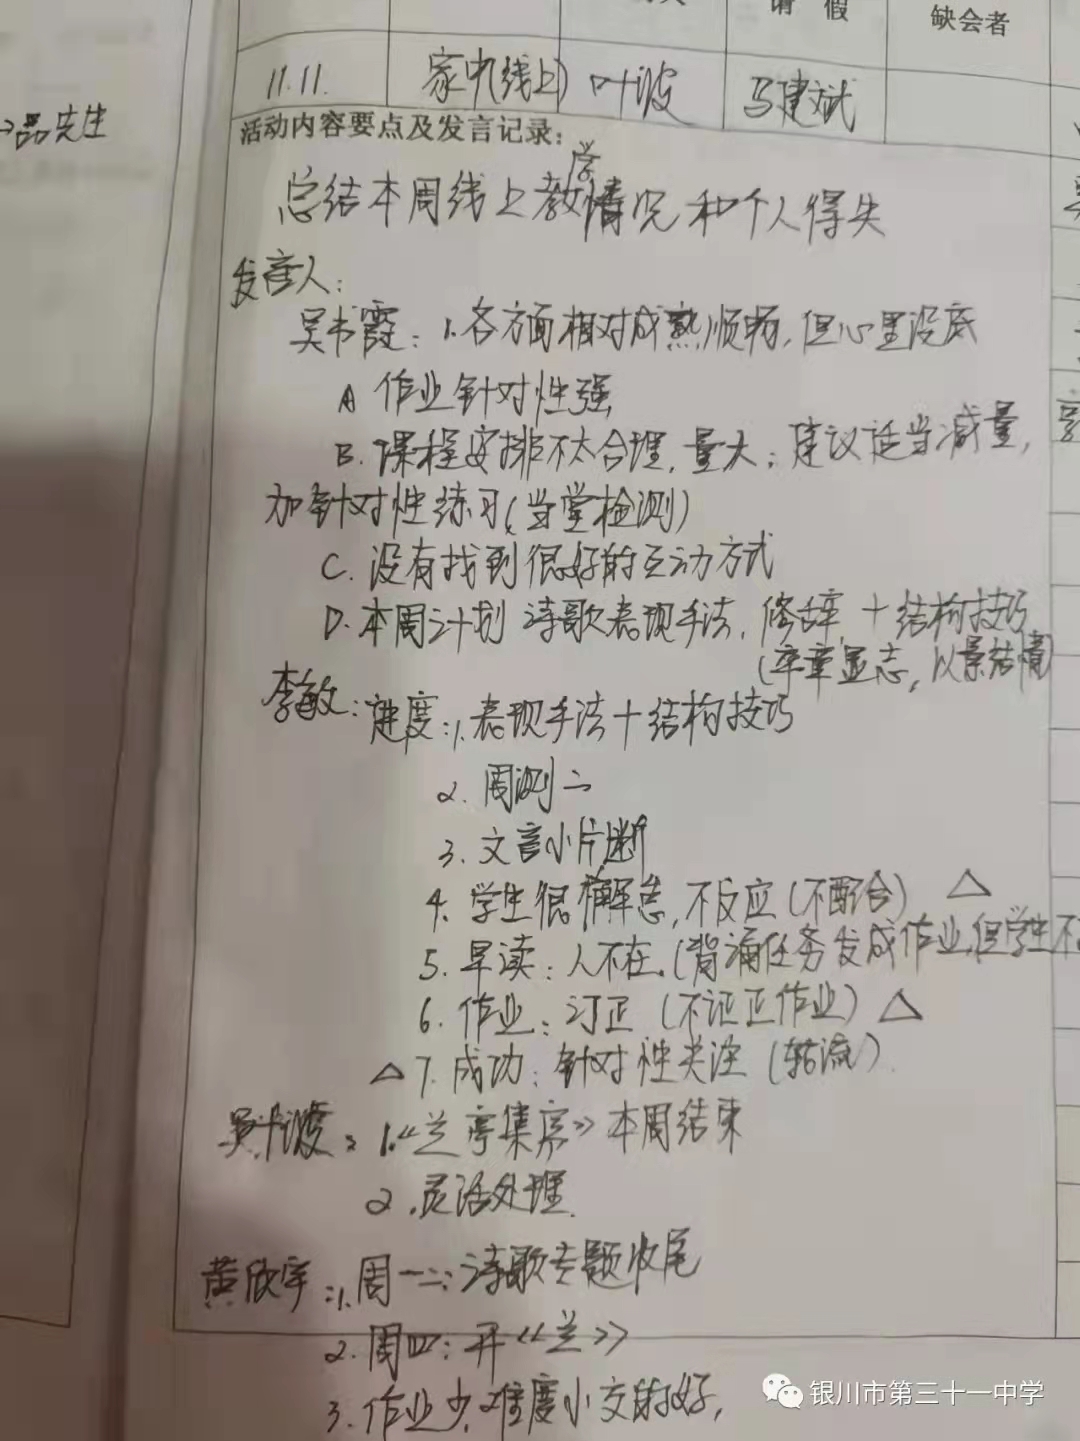 请 假
缺会者
11.11.
家中(线上)
叶波
马建斌
先生
活动内容要点及发言记录:
总结本周线上教学情况和个人得失
发言人:
吴书霞: 1.各方面相对成熟顺畅,但心里没底
A 作业针对性强
B.课程安排不太合理,量大;建议适当减量,
加针对性练习(当堂检测)
C.没有找到很好的互动方式
D.本周计划 诗歌表现手法,修辞,+结构技巧
(卒章显志,以景结情)
李敏:进度:1.表现手法+结构技巧
2.周测二
3.文言小片断
4.学生很懈怠,不反应(不配合) △
5.早读:人不在.(背诵任务发成作业,但学生不
6.作业:订正(不订正作业) △
△7.成功:针对性关注(轮流).
1.《兰亭集序》本周结束
2.灵活处理.
黄欣宇:1.周一二:诗歌专题收尾
2.周四:开《兰》
3.作业少,难度小交的好,
银川市第三十一中学